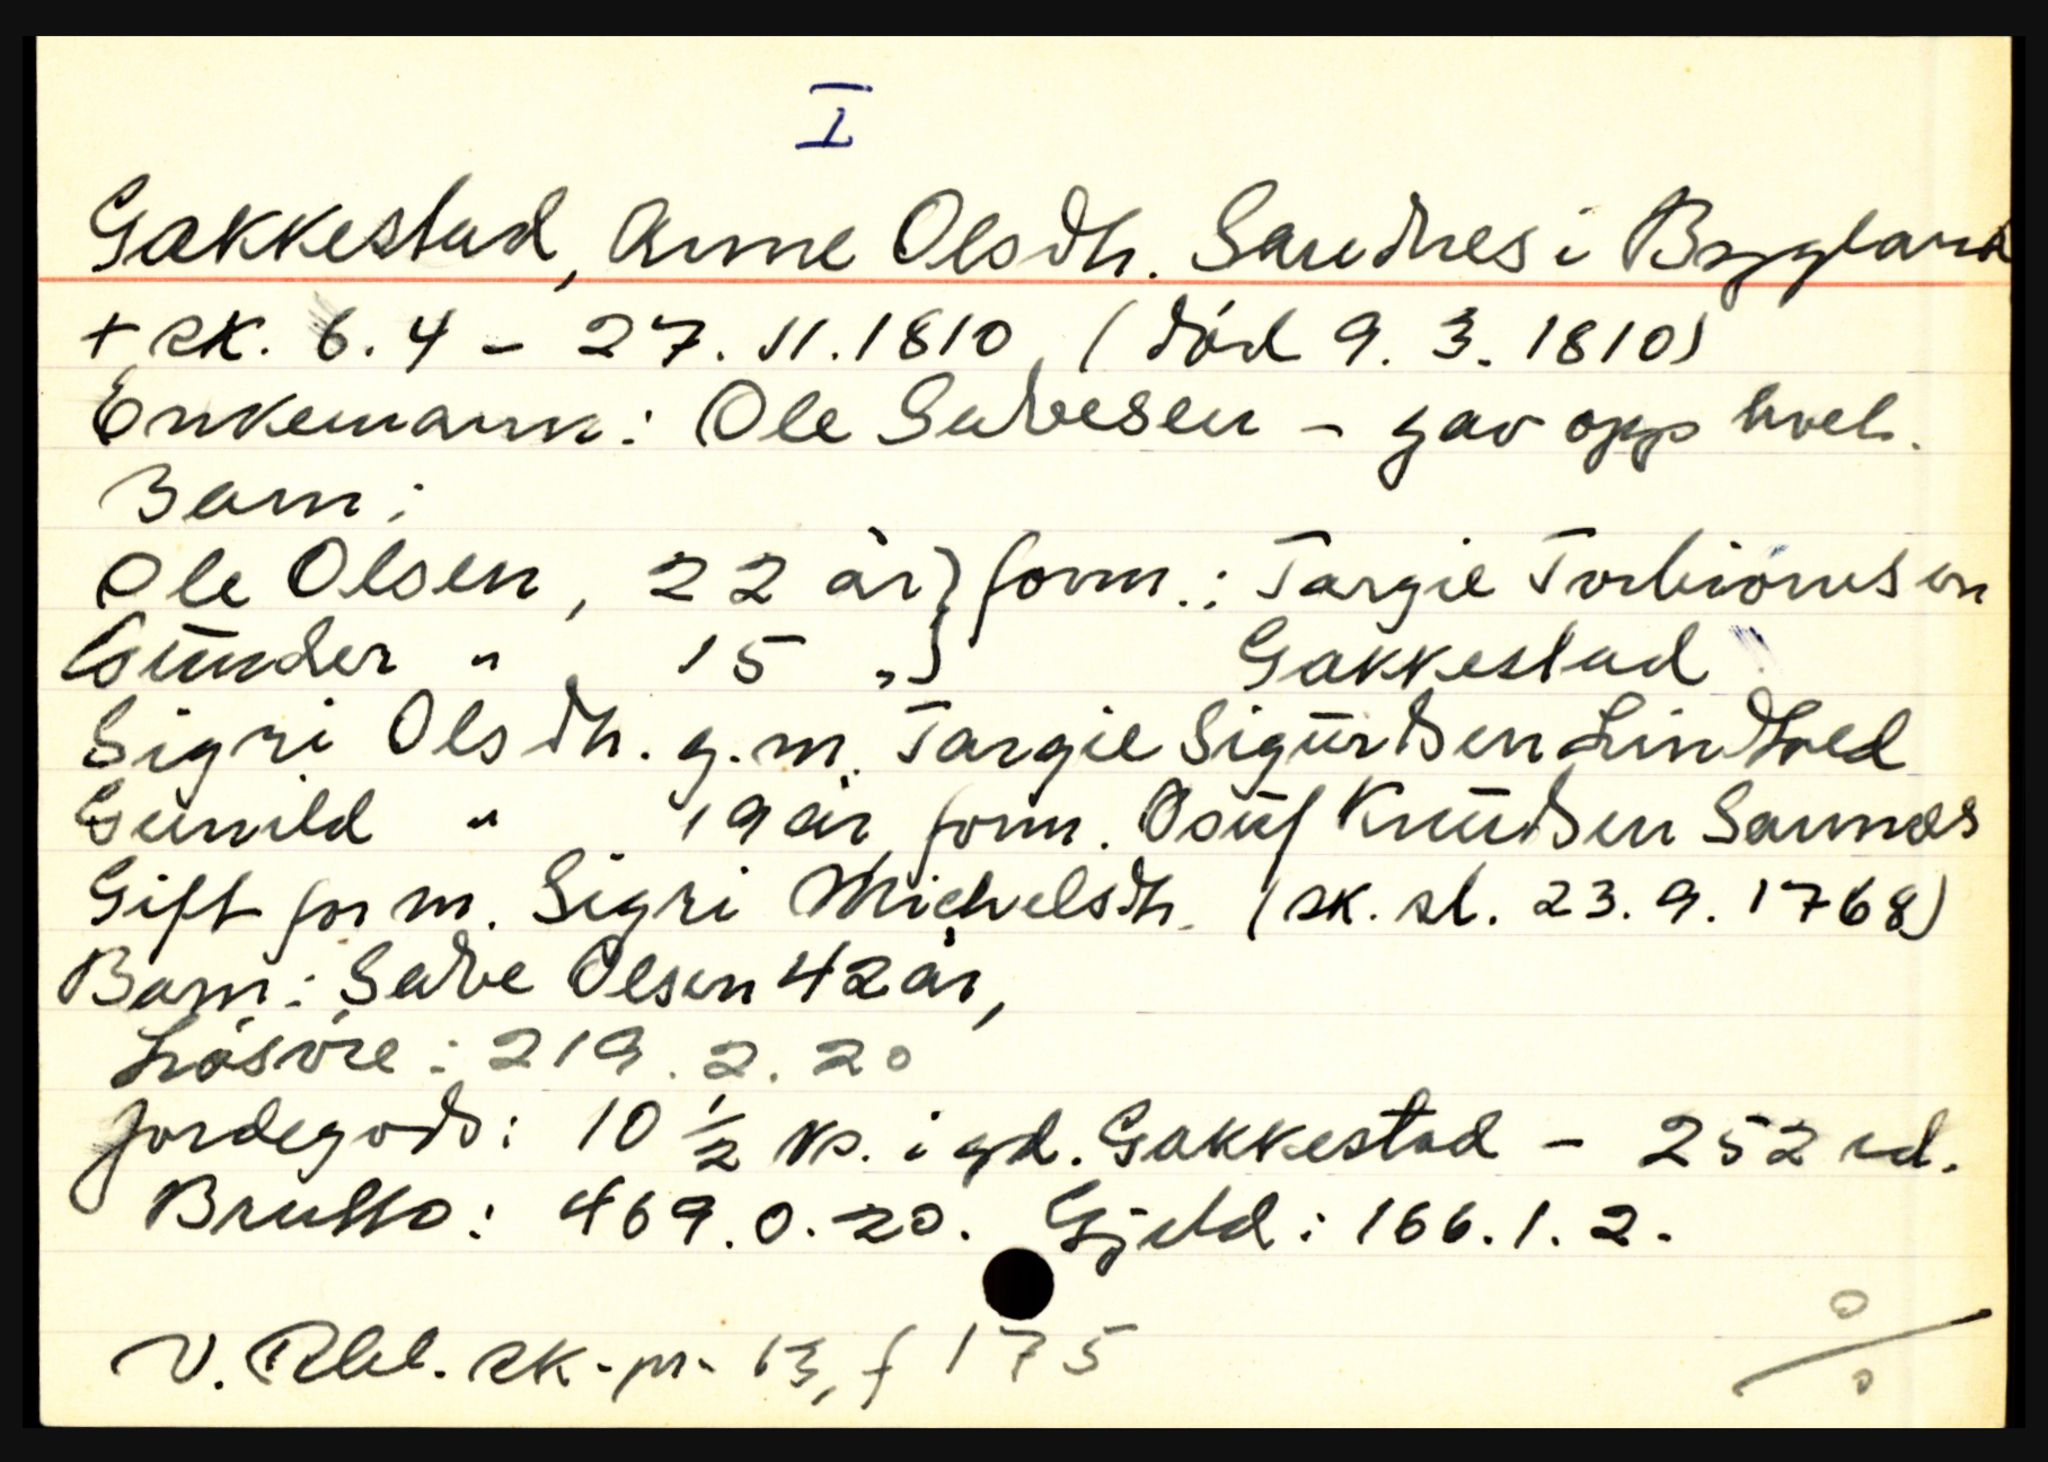 I
Gakkestad, Anne Olsdtr. Sandnes i Bygland
+ sk. 6.4 - 27.11.1810 (död 9.3.1810)
Enkemann: Ole Salvesen - gav opp
Barn:
Ole Olsen, 22 år } form.: Targie Torbiörnsen
Gunder " 15 " } Gakkestad
Sigri Olsdtr. g.m. Targie Sigurdsen Lindtved
Gunild " 19 år form. Osuf Knudsen Sannes
Gift for m. Sigri Michelsdtr. (sk. sl. 23.9.1768)
Barn: Salve Olsen 42 år,
Lösöre: 219.2.20
Jordegods: 10 1/2 ks. i gd. Gakkestad - 252 rd.
Brutto: 469.0.20. Gjeld: 166.1.2.
V. Rbl. sk.pr. 13, f 175
%